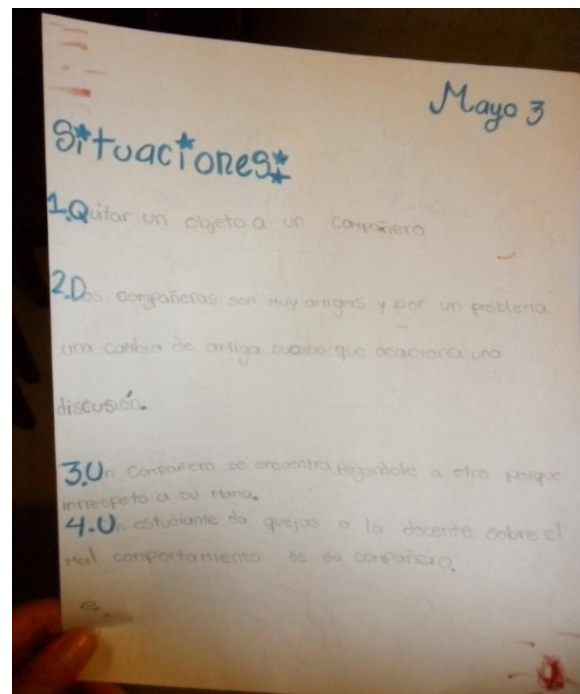 Mayo 3
Situaciones:
1.Quitar un objeto a un compañero
2.Dos compañeras son muy amigas y por un problema
una cambia de amiga que ocaciona una
discusión.
3.Un compañero se encuentra pegandole a otro porque
irrespeto a su mama.
4.Un estudiante da quejas a la docente sobre el
mal comportamiento de su compañero.